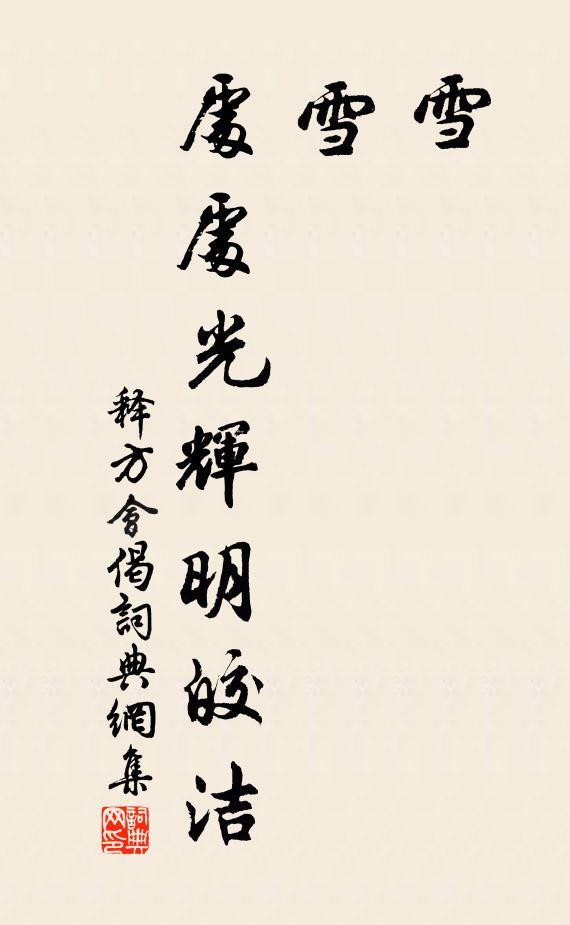 雪
雪
處處光輝明皎洁
释方會偈詞典網集
詞典网印